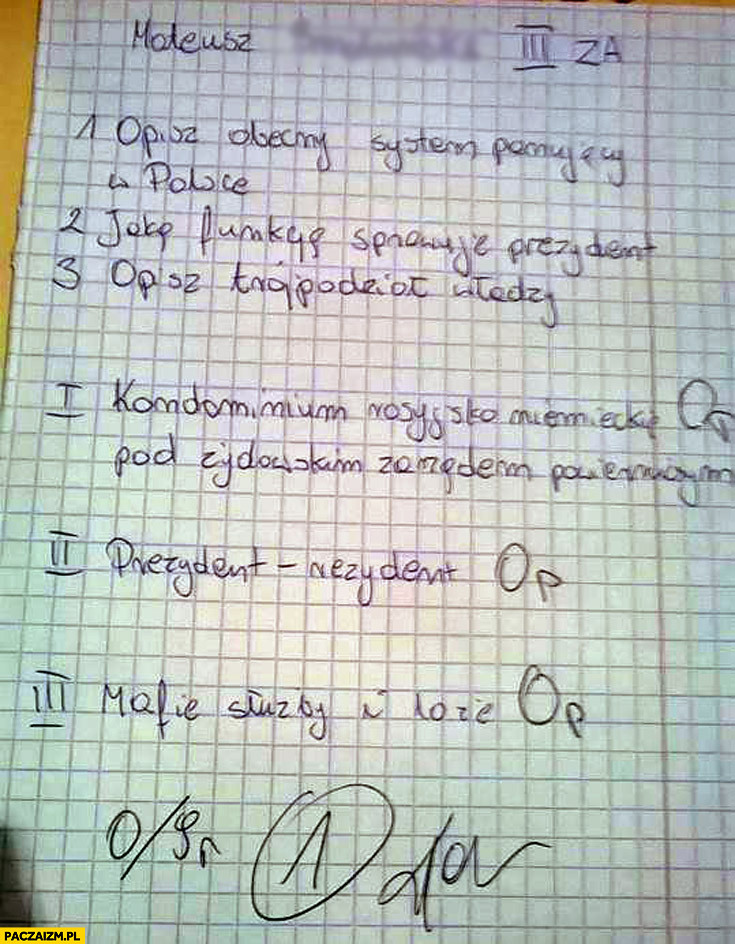 Mateusz III ZA
1 Opisz obecny system panujący
w Polsce
2 Jaką funkcję sprawuje prezydent
3 Opisz trójpodział władzy
I Kondominium rosyjsko niemieckie 0p
pod żydowskim zarządem powierniczym
II Prezydent - rezydent 0p
III Mafie służby i loże 0p
0/9p 1
PACZAIZM.PL